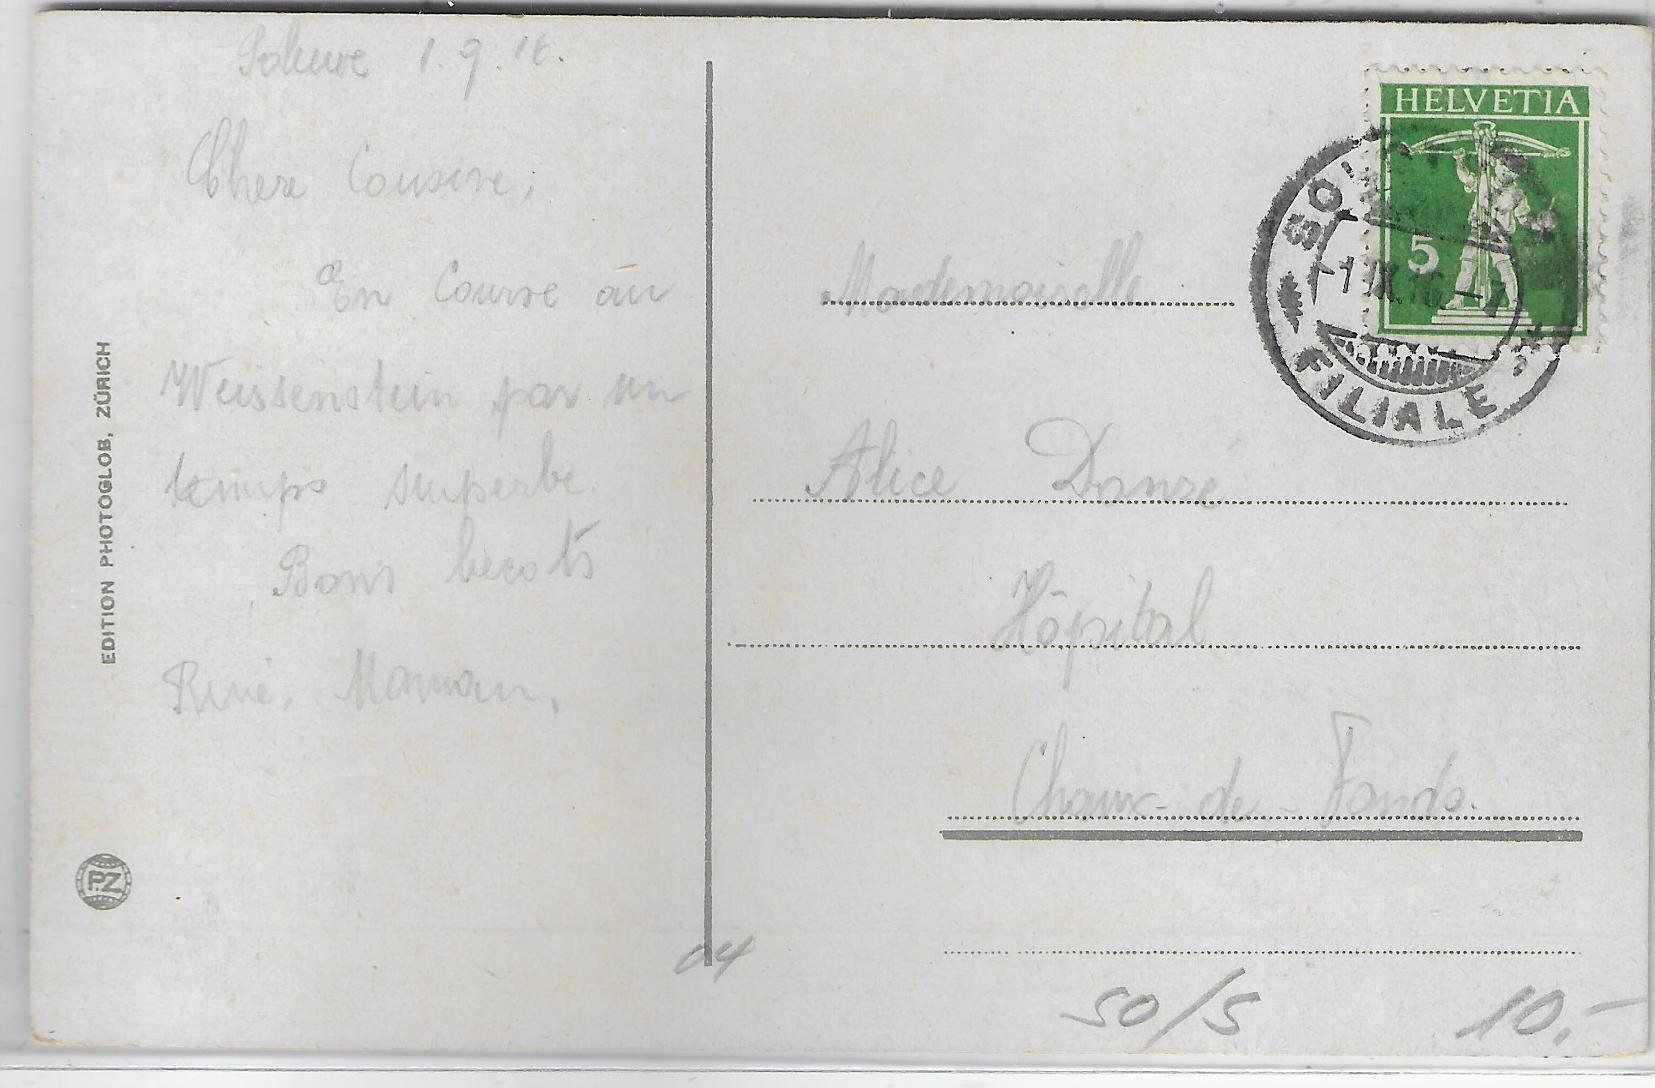 Soleure 1.9.16.
Chère Cousine,
En Course au
Weissenstein par un
temps superbe
Bons becots
René. Maman.
EDITION PHOTOGLOB, ZÜRICH
PZ
HELVETIA
5
1.IX.16.
FILIALE
Mademoiselle
Alice
Hôpital
Chaux-de-Fonds.
04
50/5
10.-